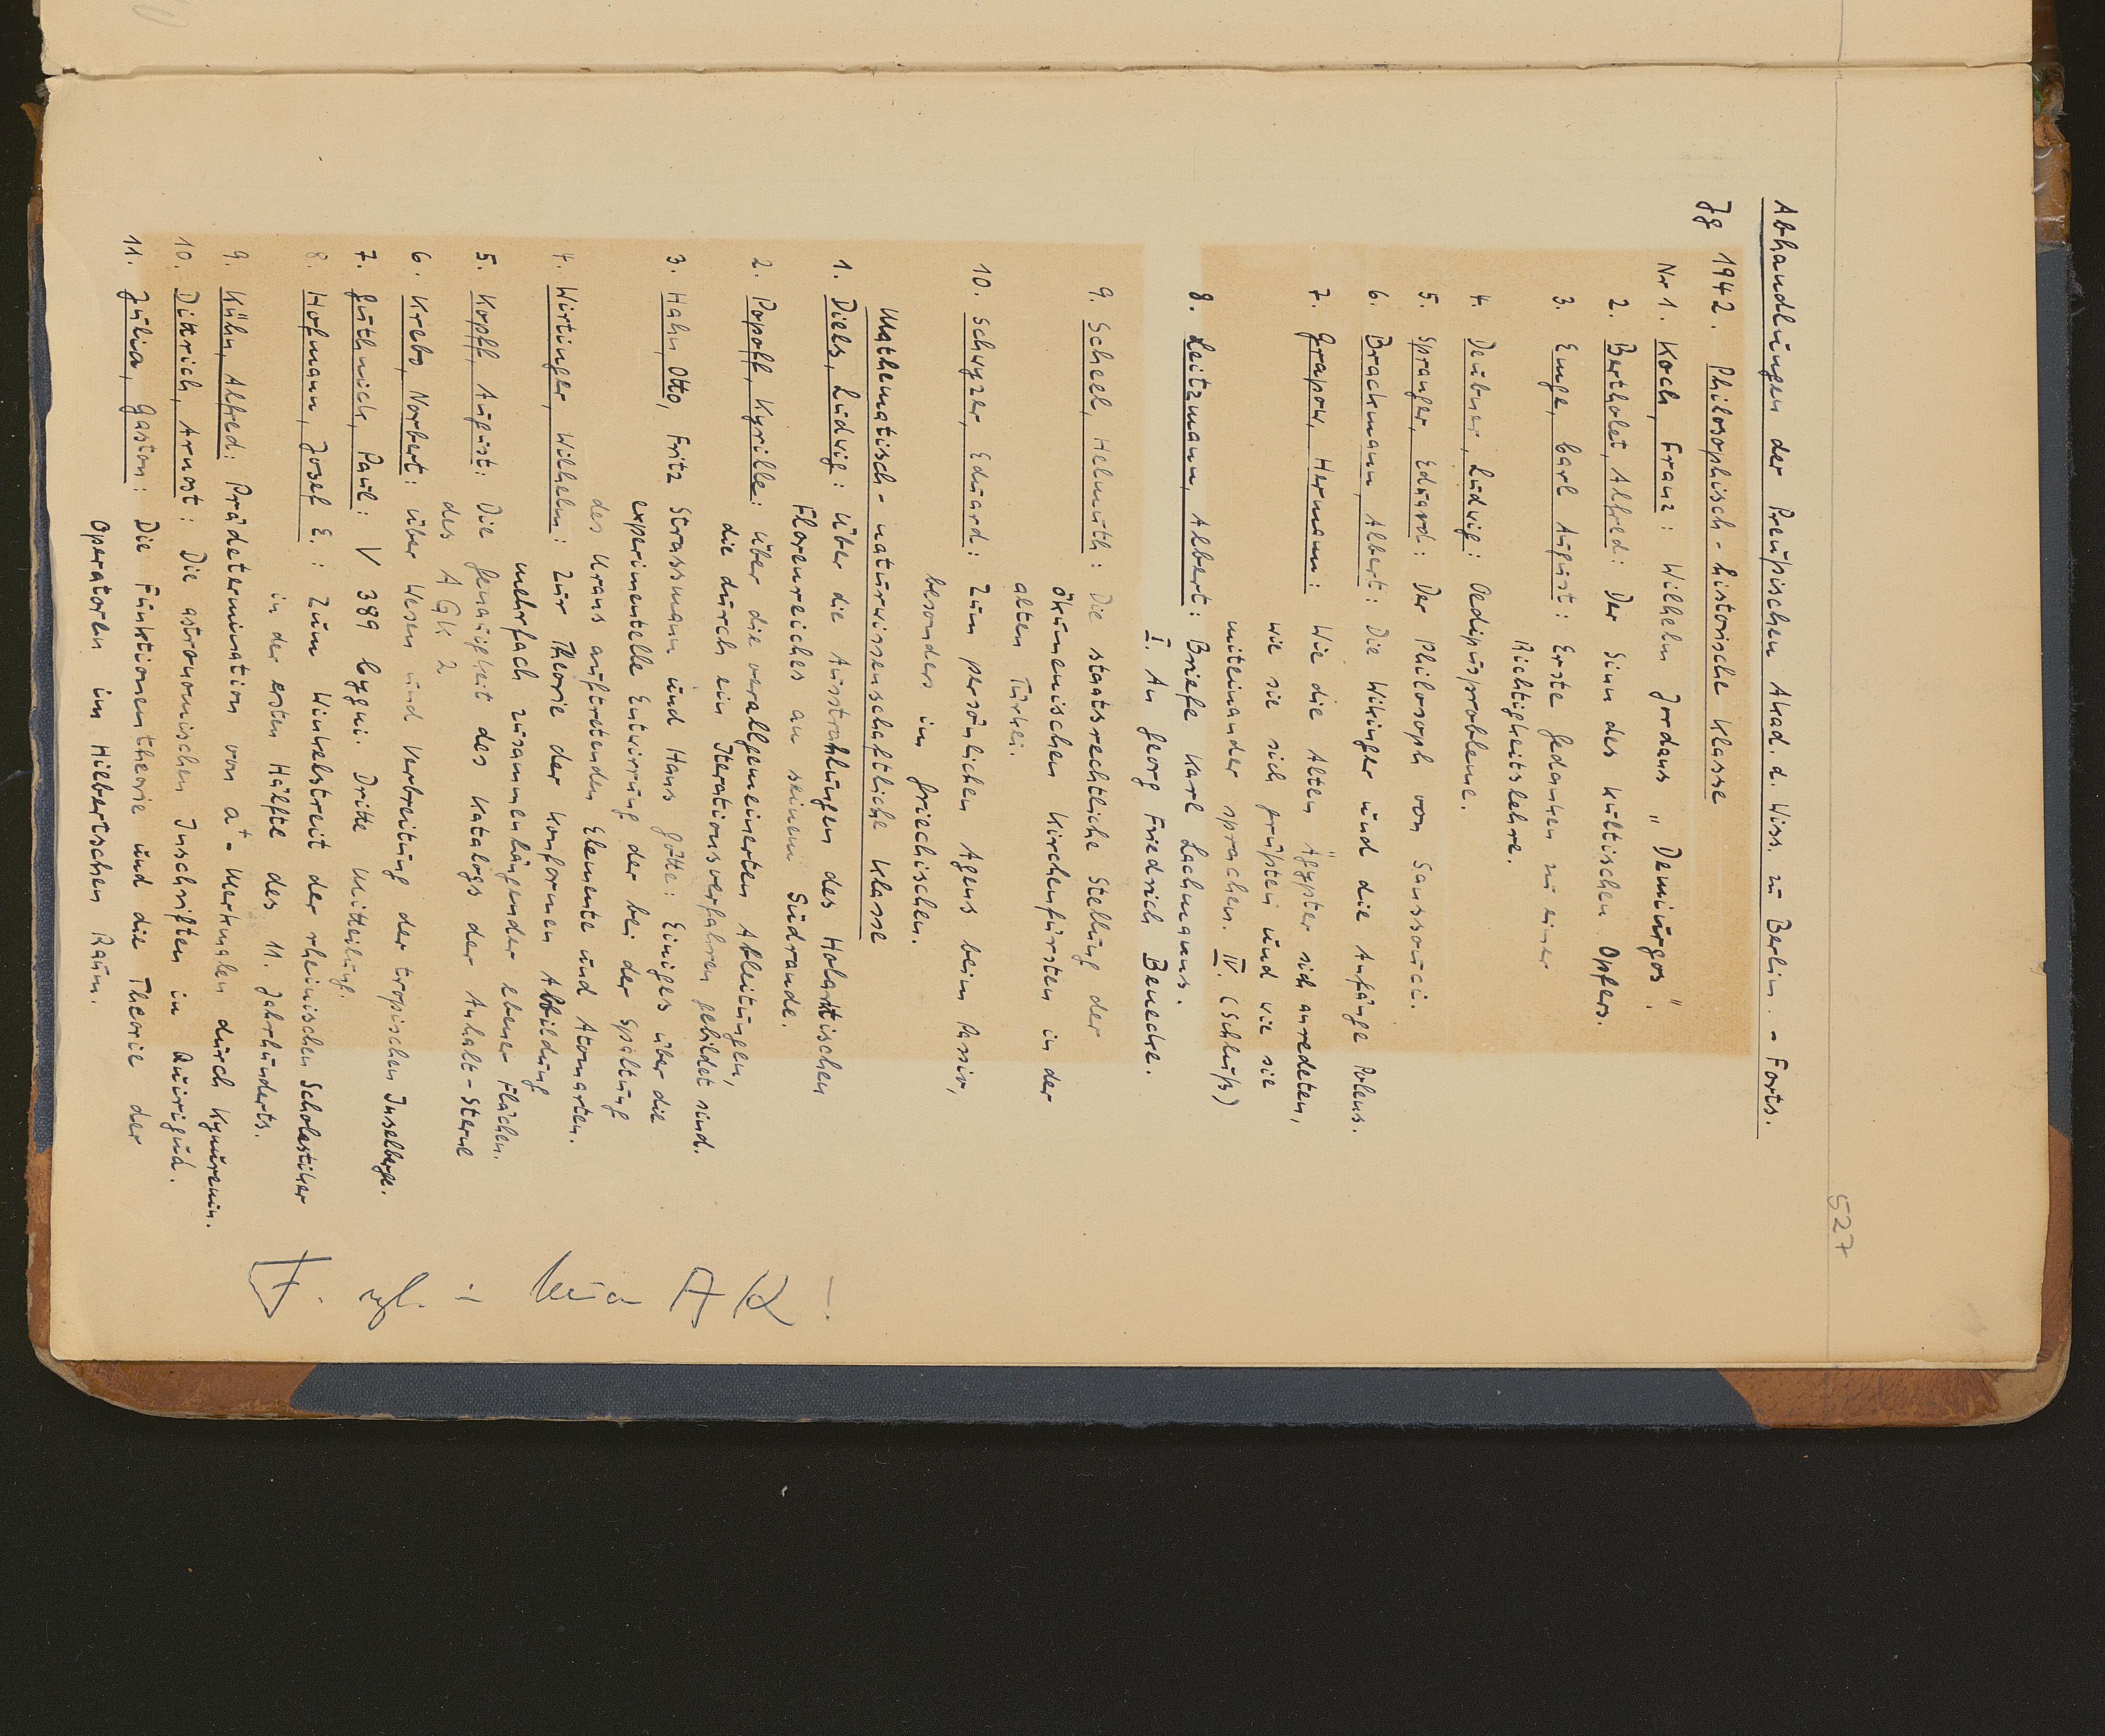 527
Abhandlungen der Preußischen Akad. d. Wiss. zu Berlin. - Forts.
Jg 1942. Philosophisch-historische Klasse
Nr 1. Koch, Franz: Wilhelm Jordans "Demiurgos".
2. Bertholet, Alfred: Der Sinn des kultischen Opfers.
3. Emge, Carl August: Erste Gedanken zu einer
Richtigkeitslehre.
4. Deubner, Ludwig: Oedipusprobleme.
5. Spranger, Eduard: Der Philosoph von Sanssouci.
6. Brackmann, Albert: Die Wikinger und die Anfänge Polens.
7. Grapow, Hermann: Wie die Alten Ägypter sich anredeten,
wie sie sich grüßten und wie sie
miteinander sprachen. IV. (Schluß)
8. Leitzmann, Albert: Briefe Karl Lachmanns.
I. An Georg Friedrich Benecke.
9. Scheel, Helmuth: Die staatsrechtliche Stellung der
ökumenischen Kirchenfürsten in der
alten Türkei.
10. Schwyzer, Eduard: Zum persönlichen Agens beim Passiv,
besonders im Griechischen.
Mathematisch-naturwissenschaftliche Klasse
1. Diels, Ludwig: Über die Ausstrahlungen des Holarktischen
Florenreiches an seinem Südrande.
2. Popoff, Kyrille: Über die verallgemeinerten Ableitungen,
die durch ein Iterationsverfahren gebildet sind.
3. Hahn, Otto, Fritz Strassmann und Hans Götte: Einiges über die
experimentelle Entwirrung der bei der Spaltung
des Urans auftretenden Elemente und Atomarten.
4. Wirtinger, Wilhelm: Zur Theorie der konformen Abbildung
mehrfach zusammenhängender ebener Flächen.
5. Kopff, August: Die Genauigkeit des Katalogs der Anhalt-Sterne
des AGK 2
6. Krebs, Norbert: Über Wesen und Verbreitung der tropischen Inselberge.
7. Guthnick, Paul: V 389 Cygni. Dritte Mitteilung.
8. Hofmann, Josef E.: Zum Winkelstreit der rheinischen Scholastiker
in der ersten Hälfte des 11. Jahrhunderts.
9. Kühn, Alfred: Prädetermination von a⁺-Merkmalen durch Kynurenin.
10. Dittrich, Arnost: Die astronomischen Inschriften in Quirigua.
11. Julia, Gaston: Die Funktionentheorie und die Theorie der
Operatoren im Hilbertschen Raum.
AK